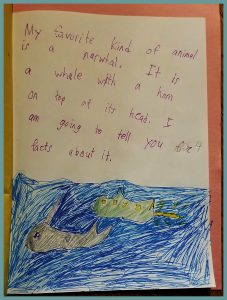 My favorite kind of animal
is a narwhal. It is
a whale with a horn
on top of its head. I
am going to tell you
facts about it.